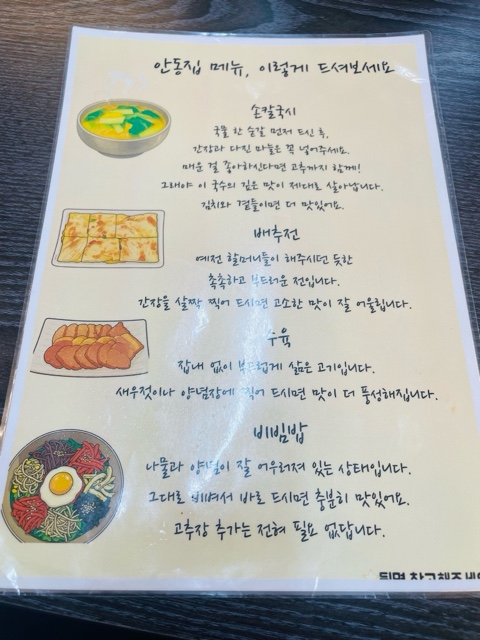 안동집 메뉴, 이렇게 드셔보세요
손칼국시
국물 한 숟갈 먼저 드신 후,
간장과 다진 마늘은 꼭 넣어주세요.
매운 걸 좋아하신다면 고추까지 함께!
그래야 이 국수의 깊은 맛이 제대로 살아납니다.
김치와 곁들이면 더 맛있어요.
배추전
예전 할머니들이 해주시던 듯한
촉촉하고 부드러운 전입니다.
간장을 살짝 찍어 드시면 고소한 맛이 잘 어울립니다.
수육
잡내 없이 부드럽게 삶은 고기입니다.
새우젓이나 양념장에 찍어 드시면 맛이 더 풍성해집니다.
비빔밥
나물과 양념이 잘 어우러져 있는 상태입니다.
그대로 비벼서 바로 드시면 충분히 맛있어요.
고추장 추가는 전혀 필요 없답니다.
뒷면 참고해주세요